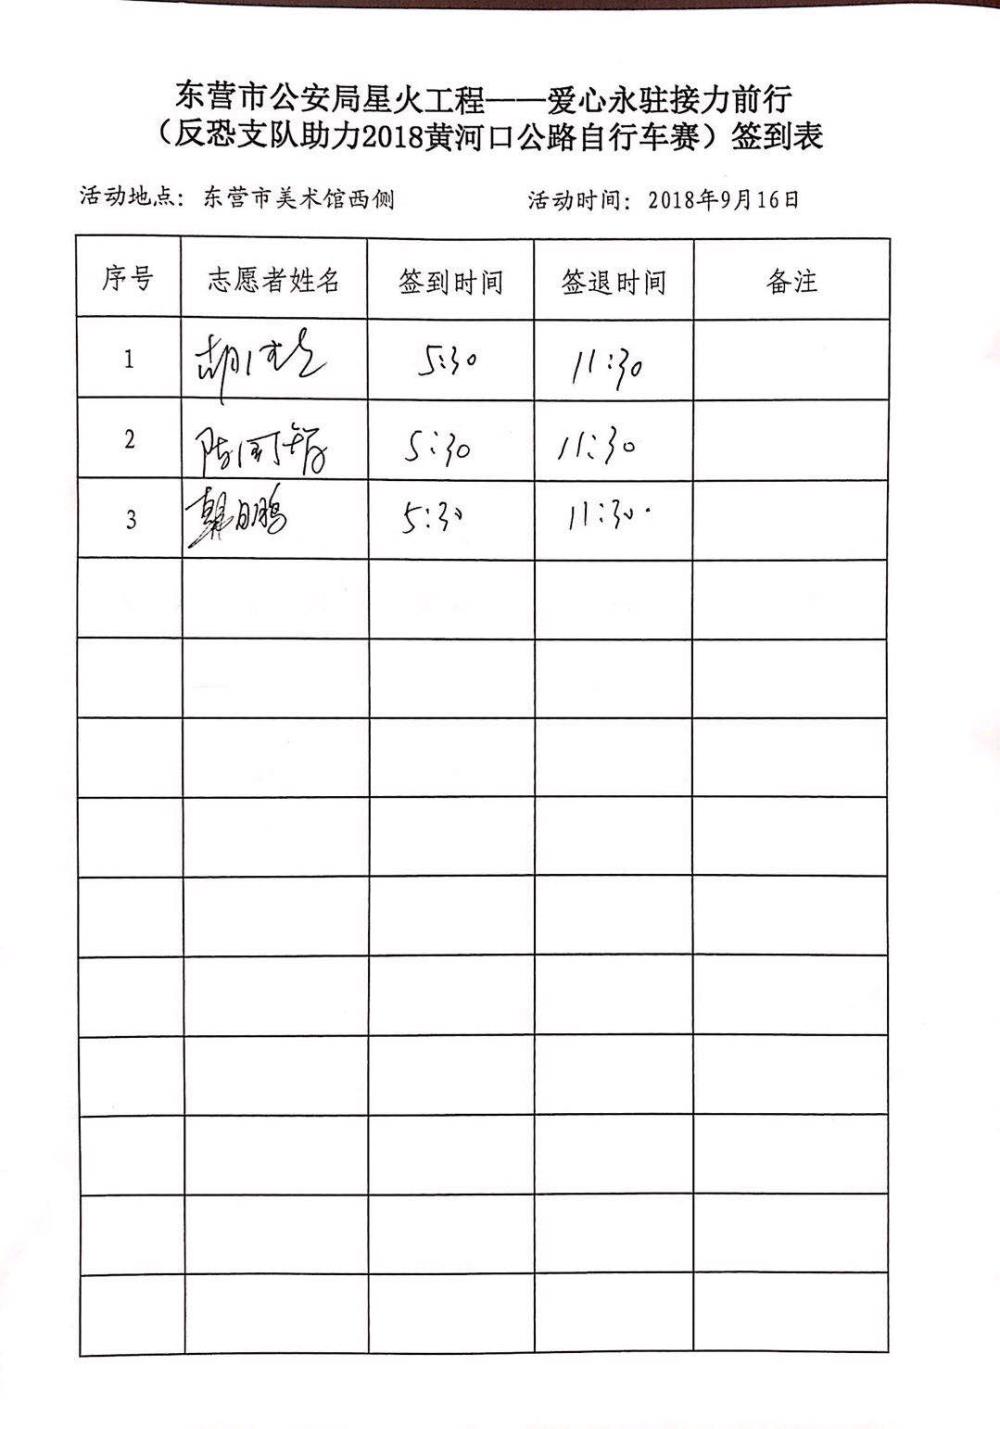 东营市公安局星火工程——爱心永驻接力前行
（反恐支队助力2018黄河口公路自行车赛）签到表
活动地点：东营市美术馆西侧 活动时间：2018年9月16日
序号 志愿者姓名 签到时间 签退时间 备注
1 5:30 11:30
2 5:30 11:30
3 5:30 11:30